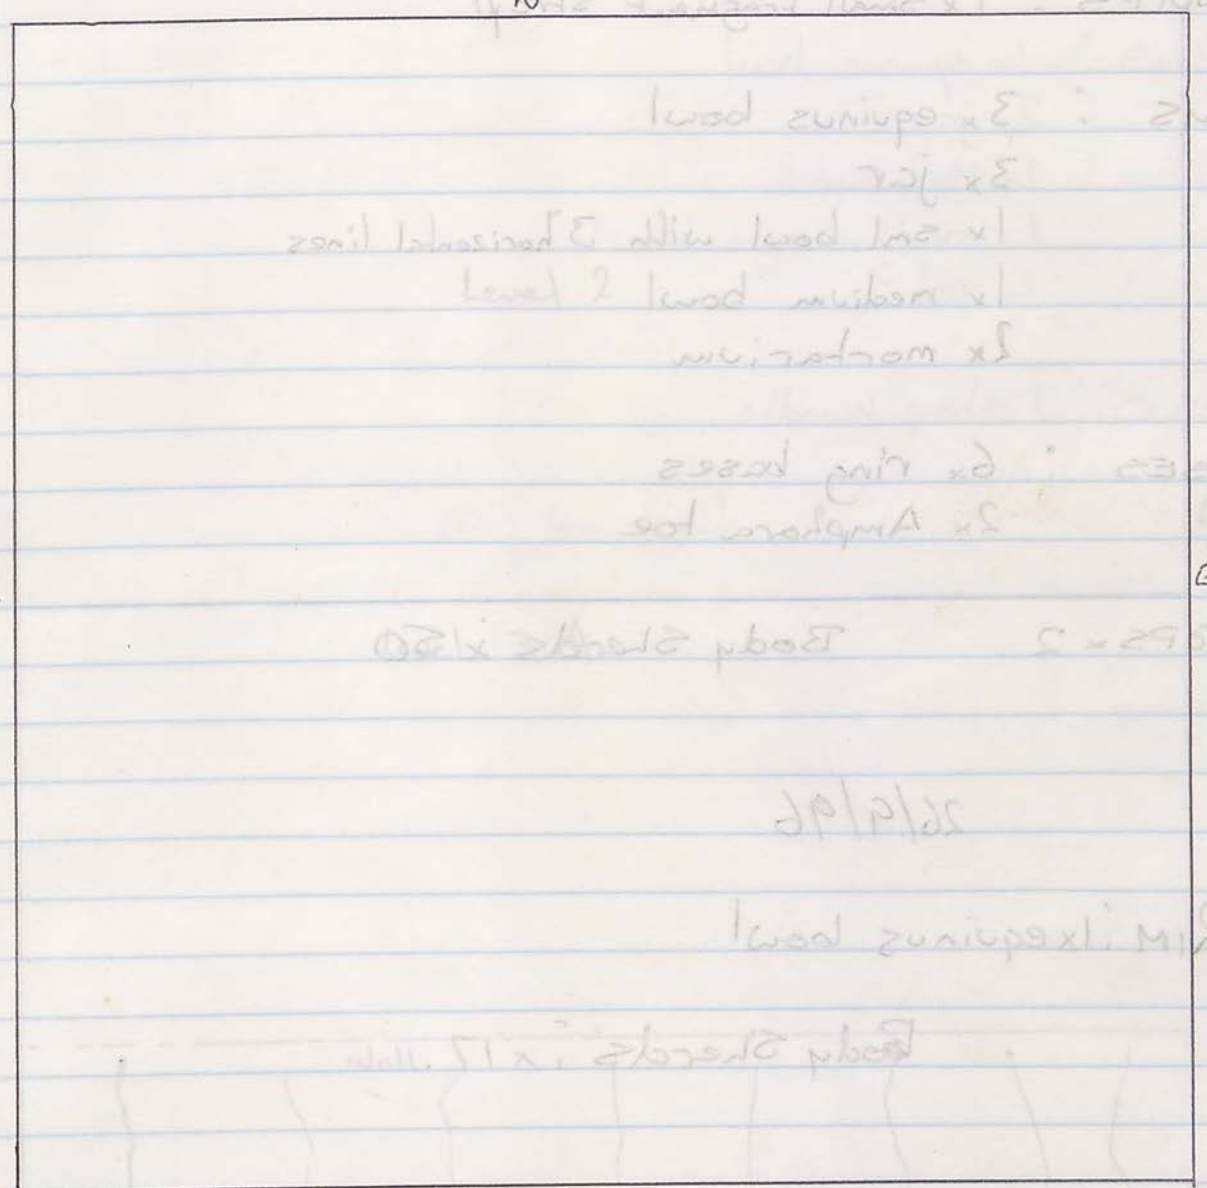 1x small fragment
: 3x equinus bowl
3x jar
1x sml bowl with 3 horizontal lines
1x medium bowl 2 Level
2x mortarium
: 6x ring bases
2x Amphora toe
x 2 Body Sherds x150
26/9/96
RIM : 1x equinus bowl
Body Sherds : x 17